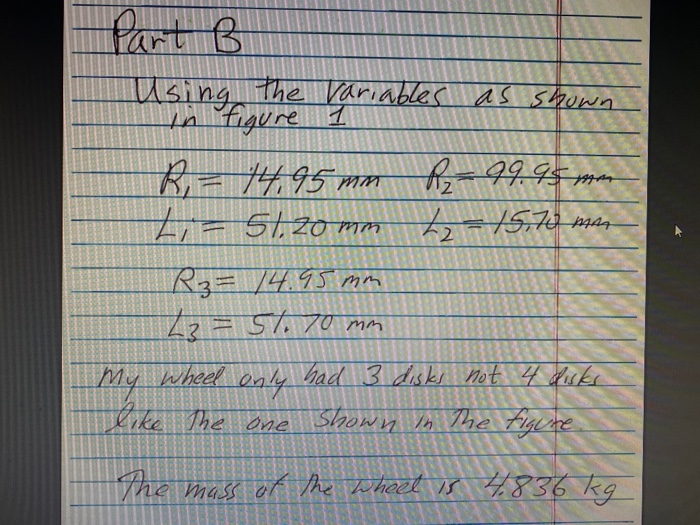 Part B
Using the variables as shown
in figure 1
R₁ = 14.95 mm R₂ = 99.95 mm
L₁ = 51.20 mm L₂ = 15.70 mm
R3 = 14.95 mm
L3 = 51.70 mm
My wheel only had 3 disks not 4 disks
like the one shown in the figure
The mass of the wheel is 4.836 kg